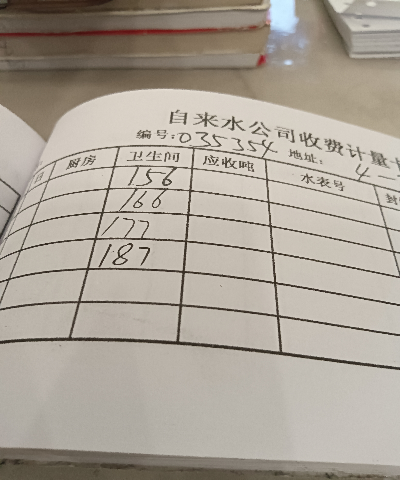 自来水公司收费计量
编号:035354 地址: 4-
厨房 卫生间 应收吨 水表号
156
166
177
187